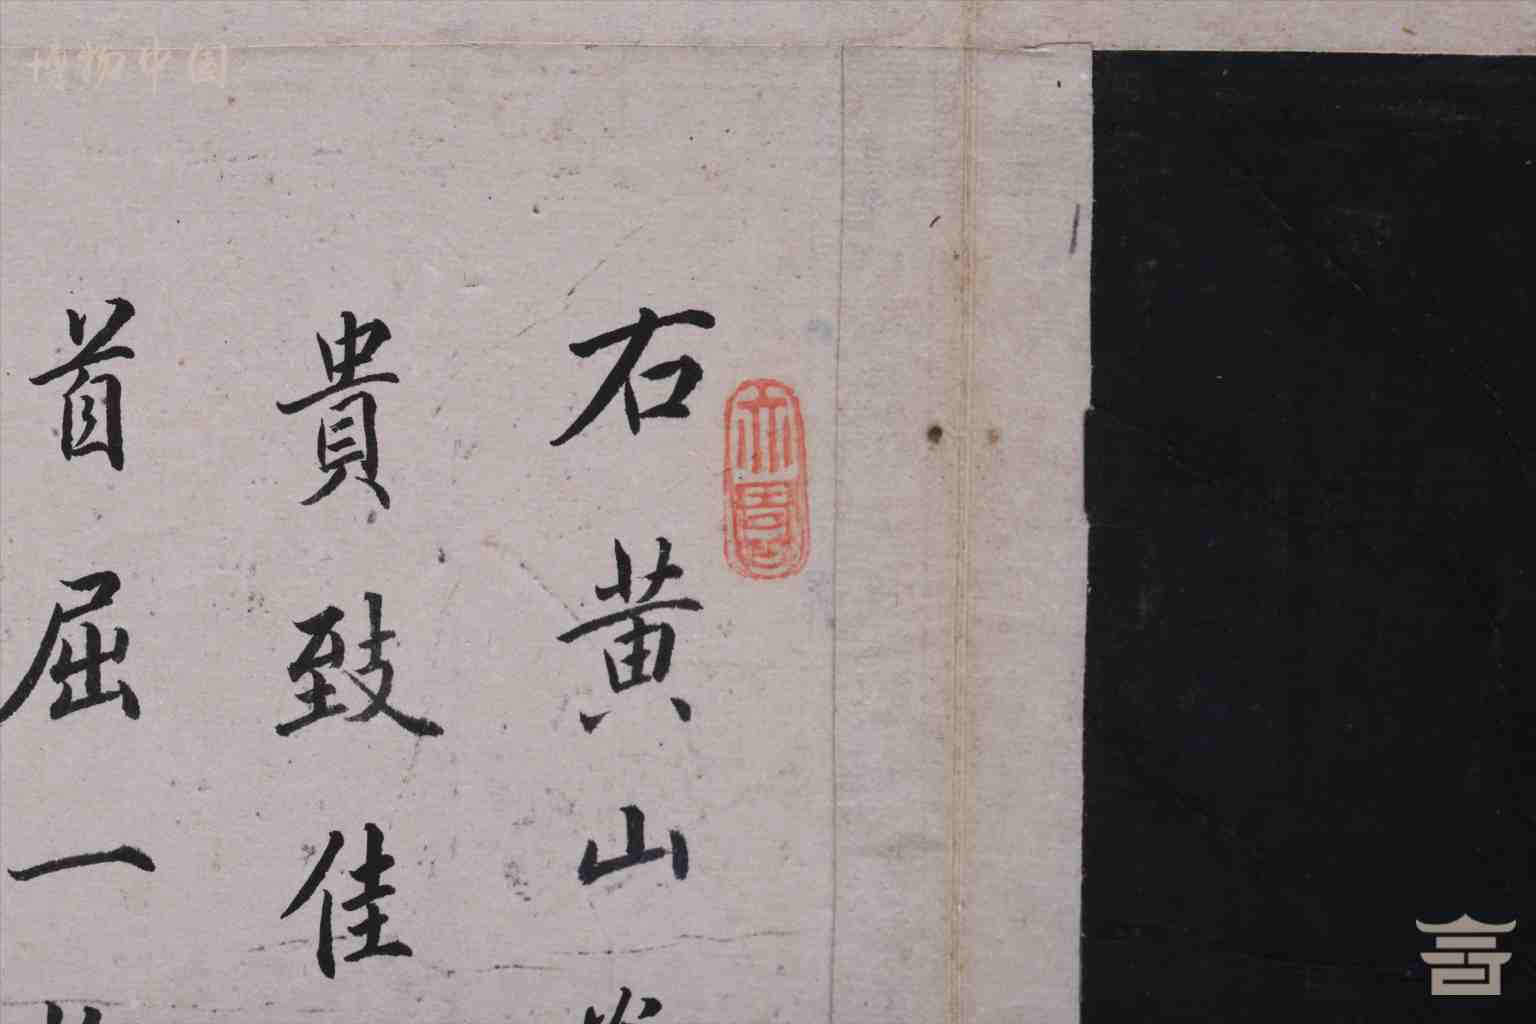 右黄山
貴致佳
首屈一
博物中国